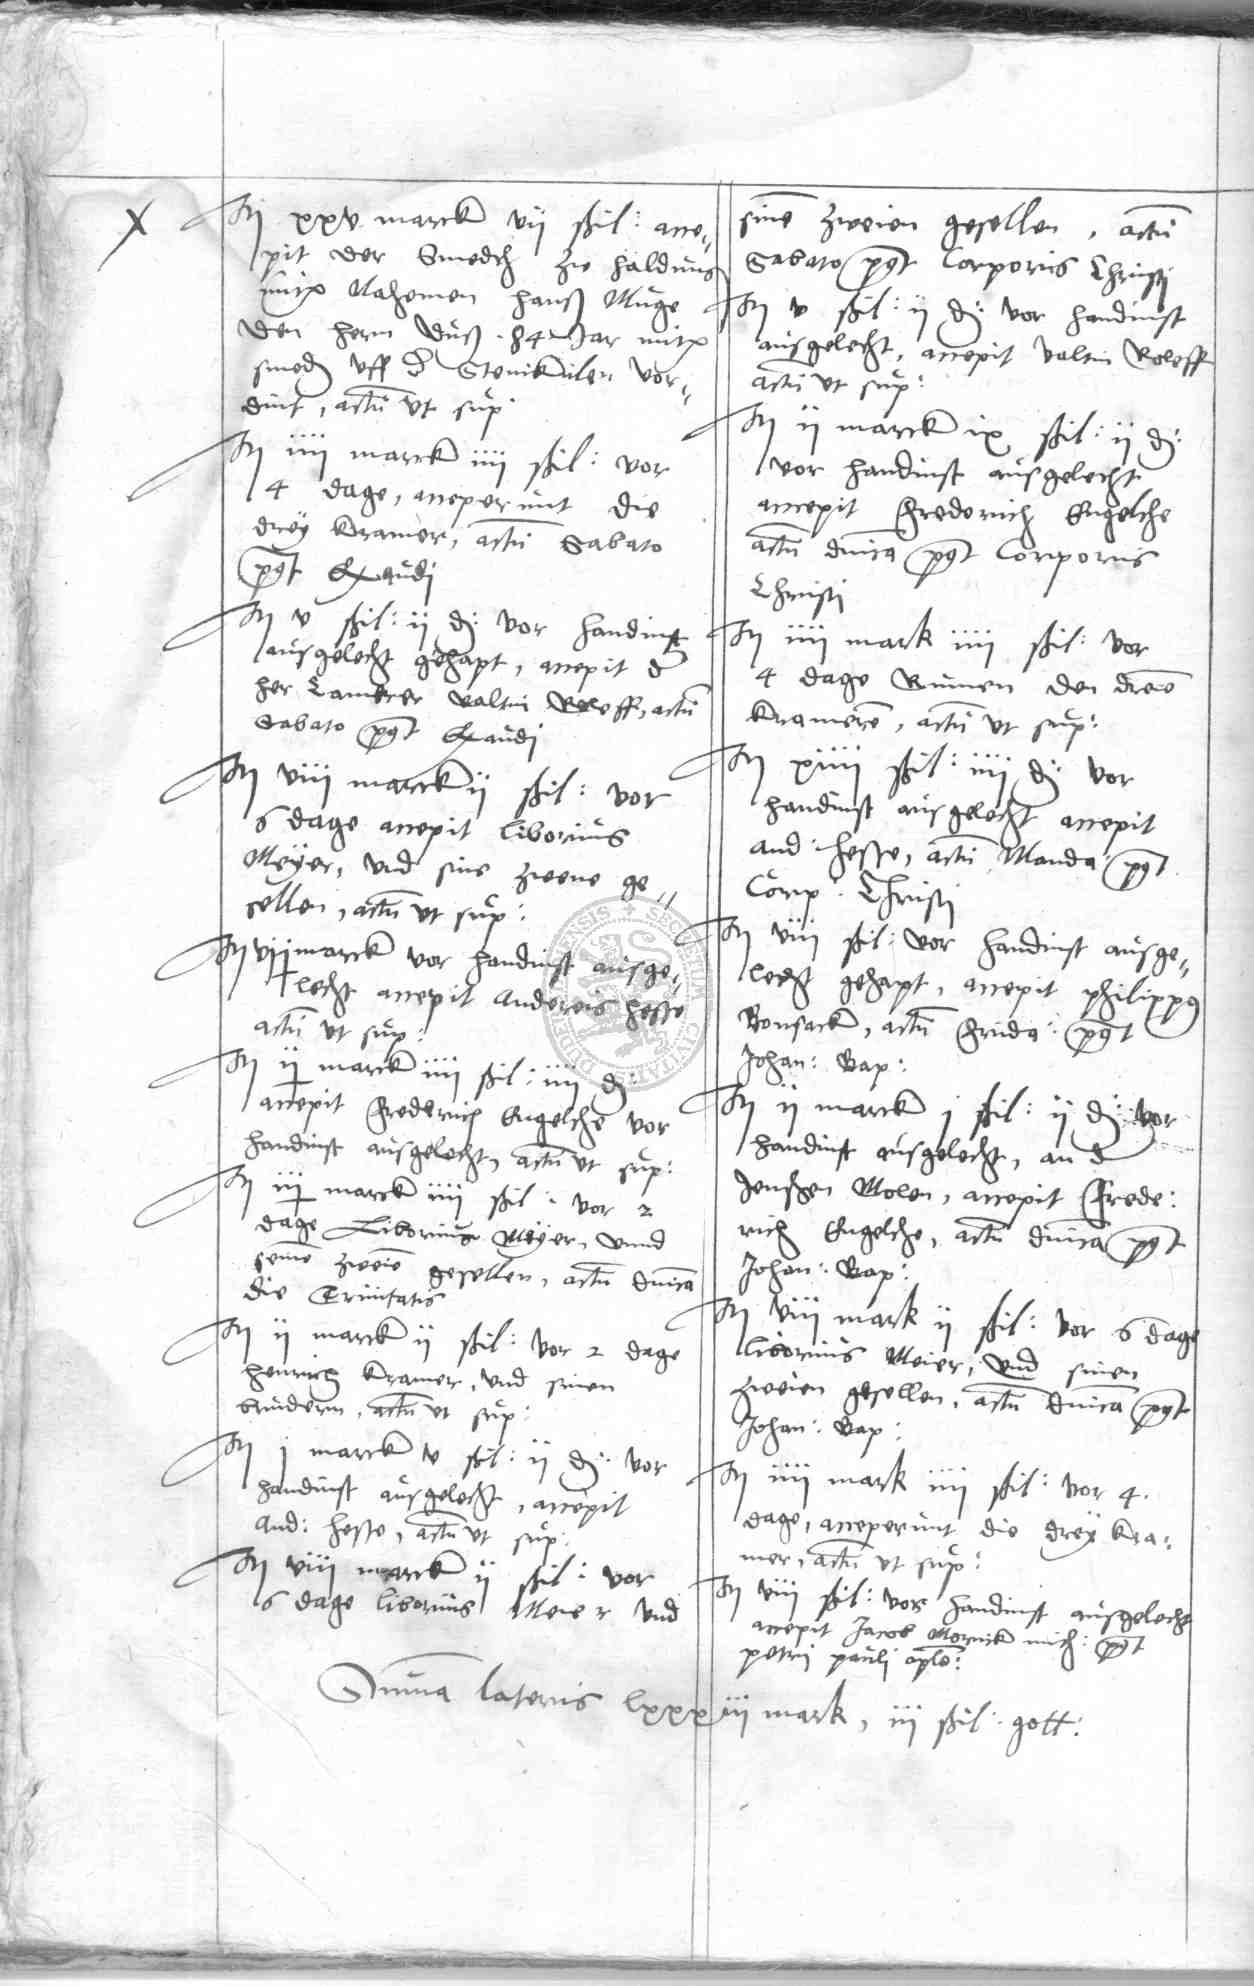 X
It xxv marck vij ßxil: acce„
pit der Smedt zu
mitt Nahemen Hanß Müge
den herrn Duß 84 Jar mitt
smeden uff d Steinkulen vor„
dint, actū ut sup:
It iiii marck iiii ßil: vor
4 dage, acceperunt die
drey Kramer, actū Sabato
post Exaudi
It v ßil: ij d: vor handinst
ausgelecht gehapt, accepit d
her Camerer Valtin Roleff, actū
Sabato post Exaudi
It viii marck ij ßil: vor
6 dage accepit Liborius
Meyer, und sine zweene ge„
sellen, actū ut sup:
It vij marck vor handinst ausge„
lecht accepit Andereis Hesse
actū ut sup:
It ij marck iiii ßil: iiii d:
accepit Frederich Engelche vor
handinst ausgelecht, actū ut sup:
It iij marck iiii ßil: vor 2
dage Liborius Meyer, unnd
seinē zweiē gesellen, actū dnica
die Trinitatis
It ij marck ij ßil: vor 2 dage
Henrich Kramer, und sinen
brudern, actū ut sup:
It j marck v ßil: ij d: vor
handinst ausgelecht, accepit
And: Hesse, actū ut sup:
It viii marck ij ßil: vor
6 dage Liborius Meier und
sinē zweien gesellen, actū
Sabato post Corporis Christi
It v ßil: ij d: vor handinst
ausgelecht, accepit Valtin Roleff
actū ut sup:
It ij marck ix ßil: ij d:
vor handinst ausgelecht
accepit Frederich Engelche
actū dnica post Corporis
Christi
It iiii mark iiii ßil: vor
4 dage den dreiē
Kramerē, actū ut sup:
It xiiii ßil: iiii d: vor
handinst ausgelecht accepit
And: Hesse, actū Manda post
Corp: Christi
It viii ßil: vor handinst ausge„
lecht gehapt, accepit Philippus
Bonsack, actū Frida: post
Johan: Bap:
It ij marck j ßil: ij d: vor
handinst ausgelecht, an d
Molen, accepit Frede:
rich Engelche, actū dnica post
Johan: Bap:
It viii mark ij ßil: vor 6 dage
Liborius Meier, und sinen
zweien gesellen, actū dnica post
Johan: Bap:
It iiii mark iiii ßil: vor 4
dage, acceperunt die drey Kra:
mer, actū ut sup:
It viii ßil: vor handinst ausgelecht
accepit Jacob mith: post
Petri Pauli aplo:
Suma lateris lxxxiii mark, iii ßil: gott: